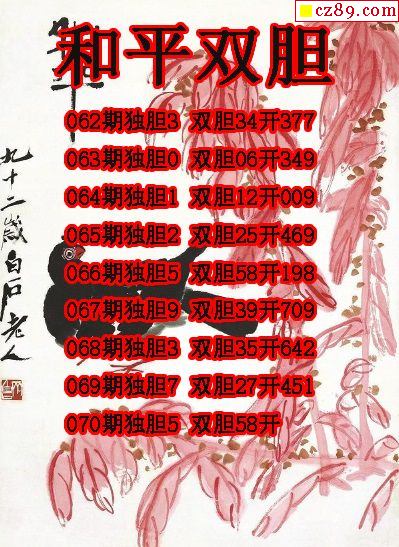 cz89.com
和平双胆
062期独胆3 双胆34开377
063期独胆0 双胆06开349
064期独胆1 双胆12开009
065期独胆2 双胆25开469
066期独胆5 双胆58开198
067期独胆9 双胆39开709
068期独胆3 双胆35开642
069期独胆7 双胆27开451
070期独胆5 双胆58开
九十二歲白石老人